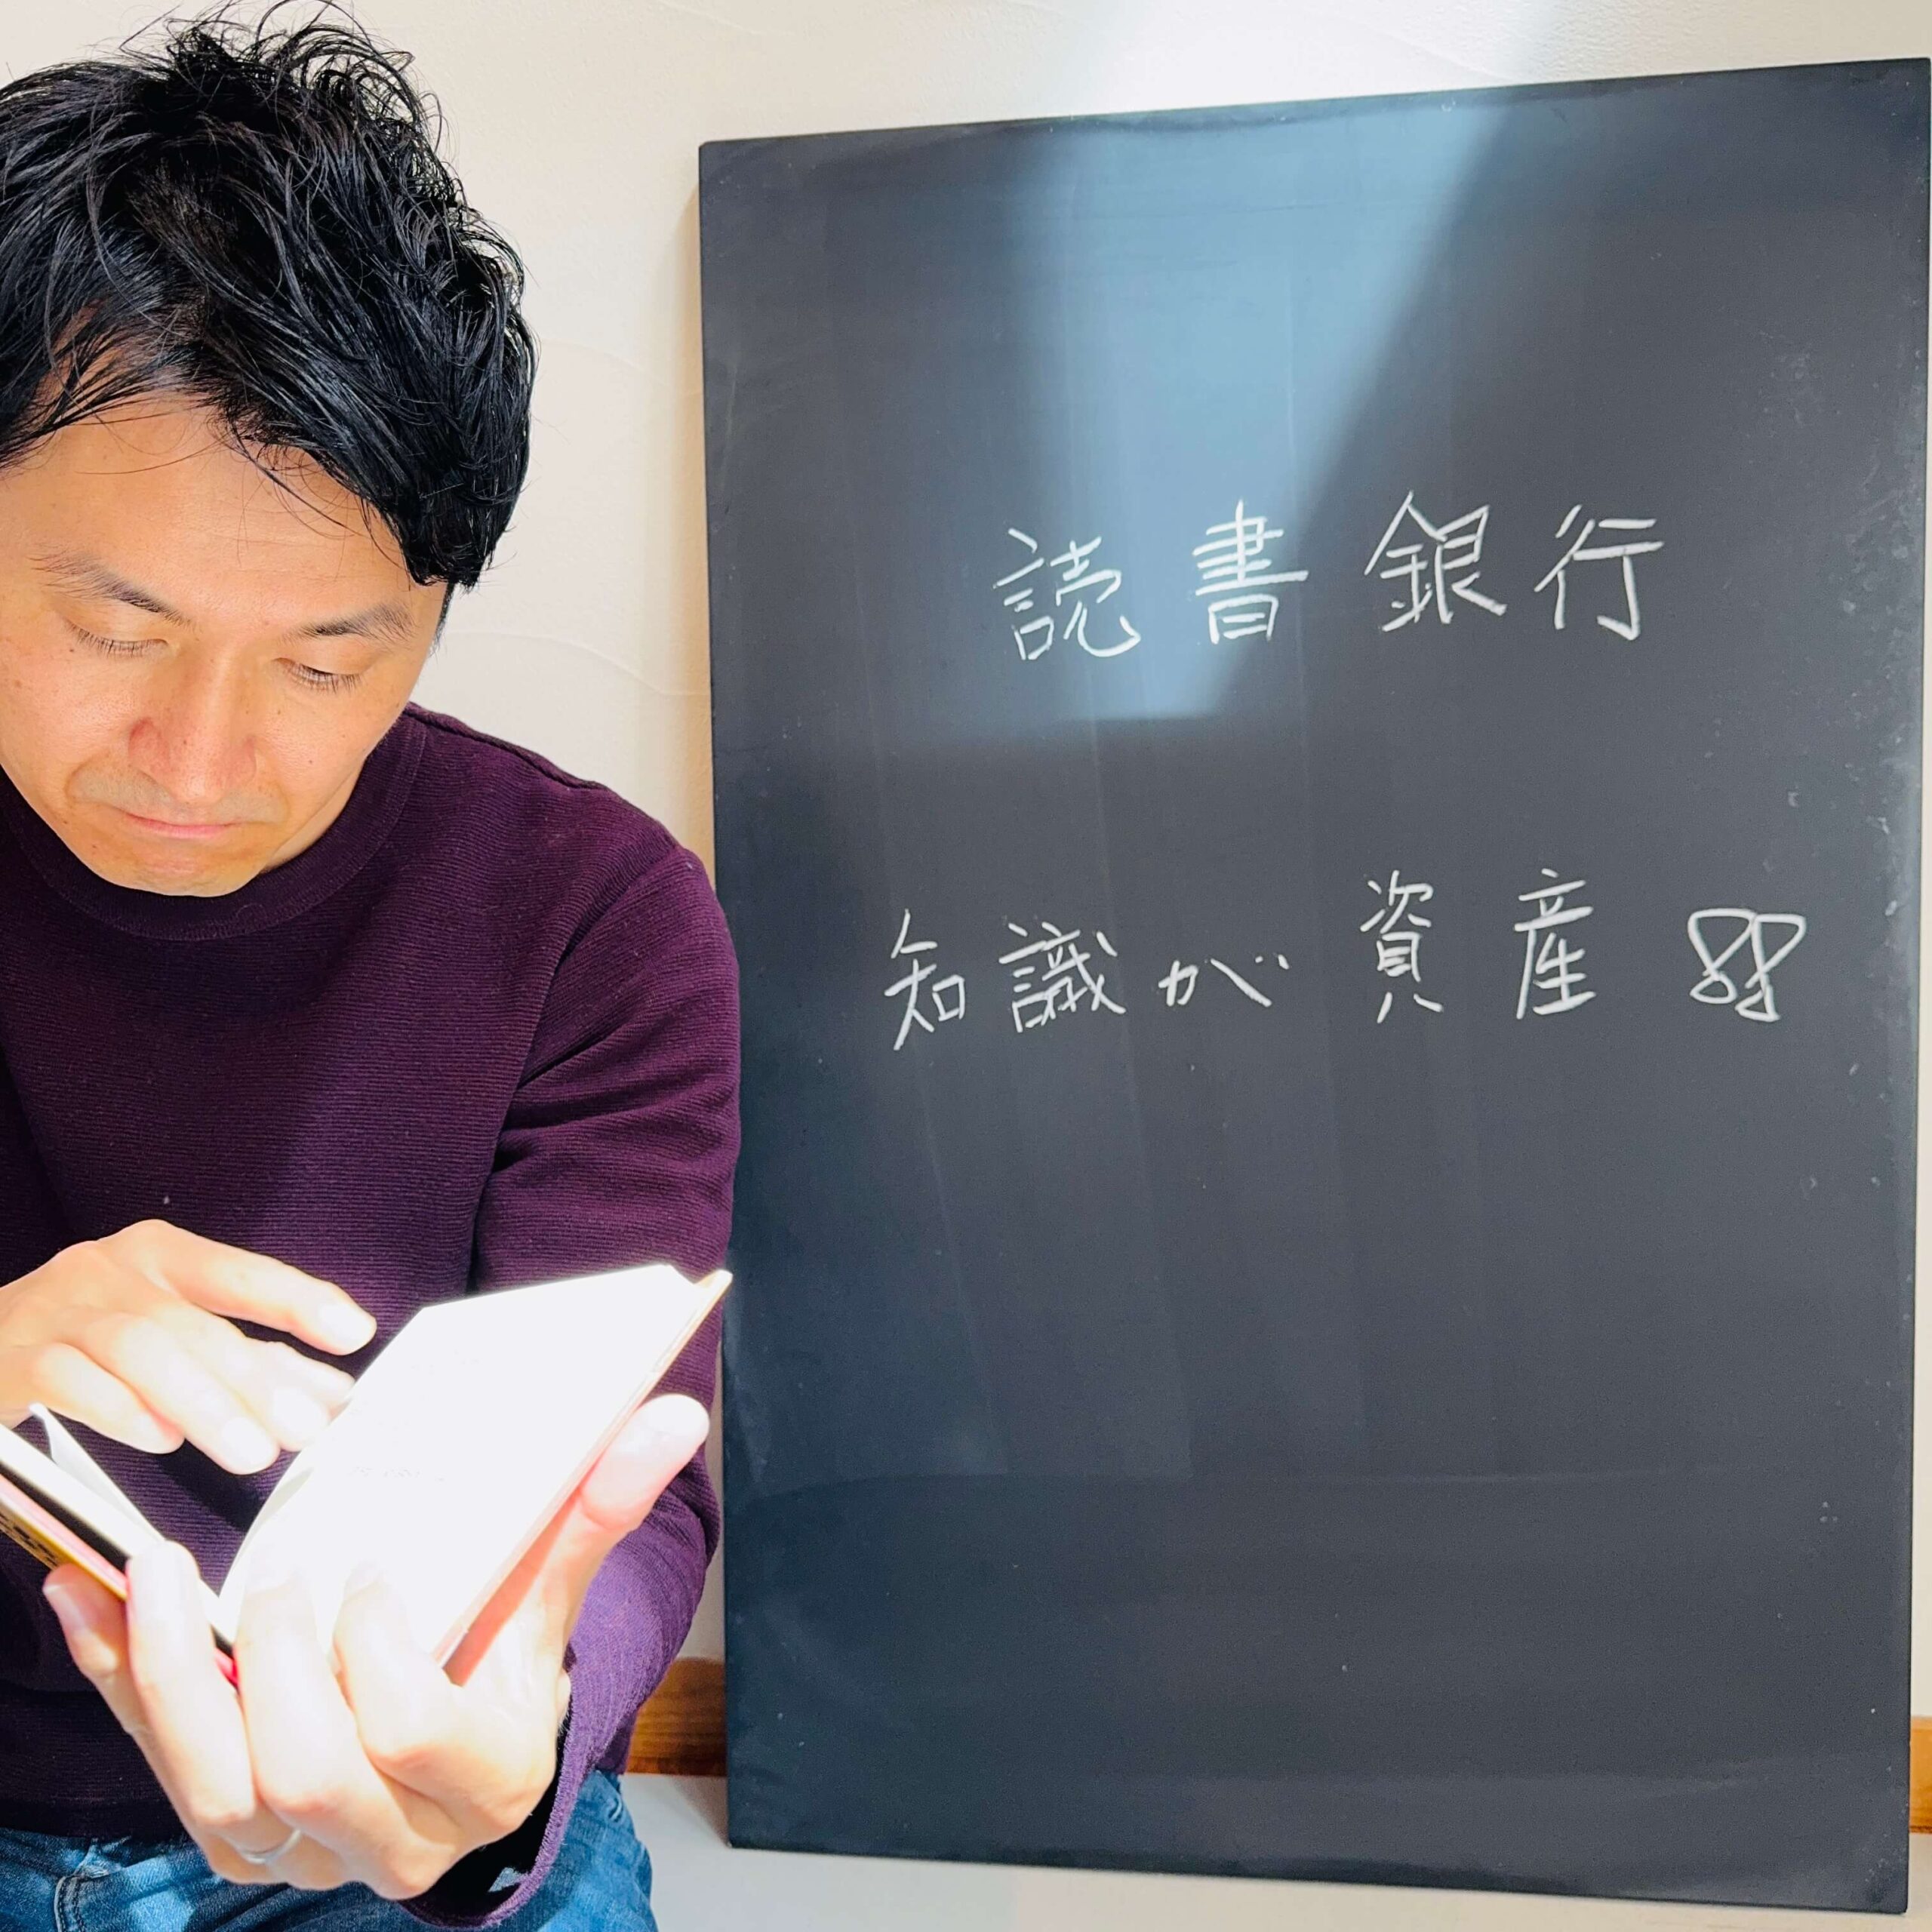 読書銀行
知識が資産!!